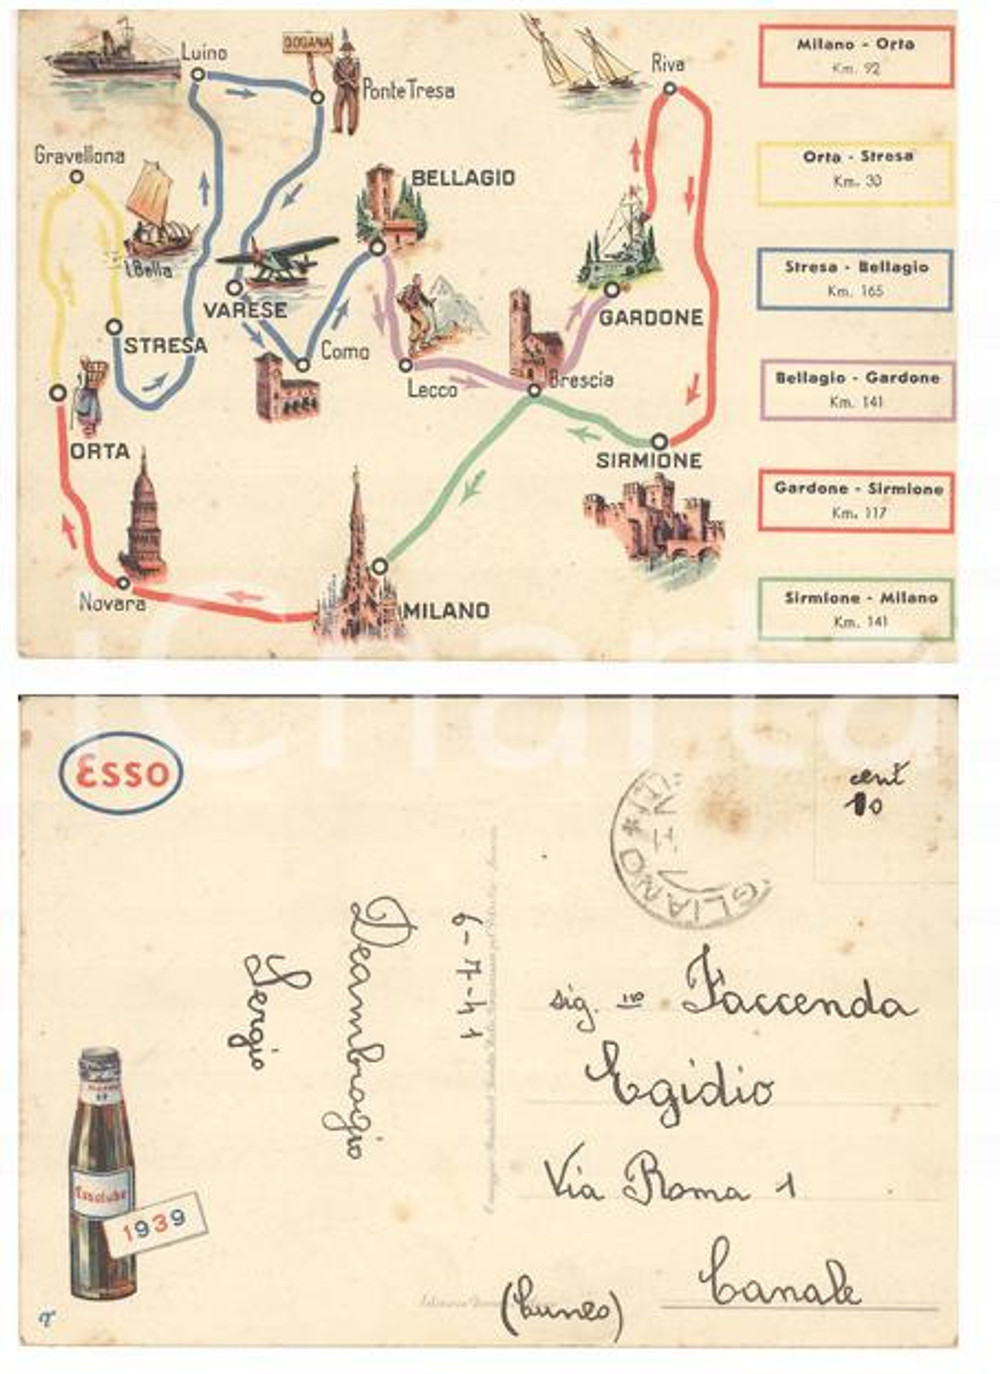 Luino
DOGANA
Ponte Tresa
Riva
Milano - Orta
Km. 92
Gravellona
BELLAGIO
Orta - Stresa
Km. 30
I. Bella
Stresa - Bellagio
Km. 165
VARESE
GARDONE
STRESA
Como
Lecco
Brescia
Bellagio - Gardone
Km. 141
ORTA
SIRMIONE
Gardone - Sirmione
Km. 117
Novara
MILANO
Sirmione - Milano
Km. 141
iCharta
ESSO
cent
10
GLIANO *
6-7-41
Deambrogio
Sergio
sig. Faccenda
Egidio
Via Roma 1
Canale
(Cuneo)
Essolube
1939